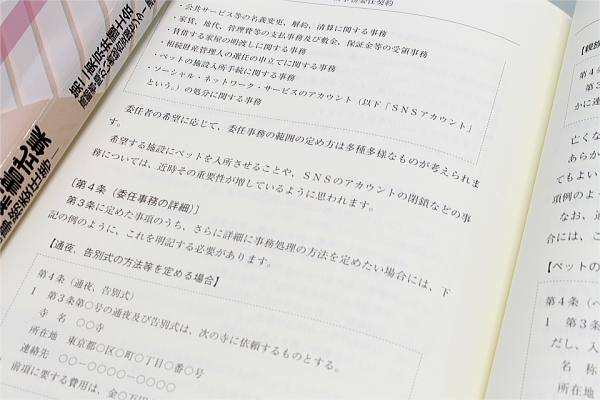 事務委任契約
・公共サービス等の名義変更、解約、清算に関する事務
・家賃、地代、管理費等の支払事務及び敷金、保証金等の受領事務
・賃借する家屋の明渡しに関する事務
・相続財産管理人の選任の申立てに関する事務
・ペットの施設入所手続に関する事務
・ソーシャル・ネットワーク・サービスのアカウント（以下「ＳＮＳアカウント」
という。）の処分に関する事務
委任者の希望に応じて、委任事務の範囲の定め方は多種多様なものが考えられま
す。
希望する施設にペットを入所させることや、ＳＮＳのアカウントの閉鎖などの事
務については、近時その重要性が増しているように思われます。
〔第４条（委任事務の詳細）〕
第３条に定めた事項のうち、さらに詳細に事務処理の方法を定めたい場合には、下
記の例のように、これを明記する必要があります。
【通夜、告別式の方法等を定める場合】
第４条（通夜、告別式）
１　第３条第○号の通夜及び告別式は、次の寺に依頼するものとする。
寺　名　○○寺
所在地　東京都○区○町○丁目○番○号
連絡先　○○－○○○○－○○○○
前項に要する費用は、金○万円
【親族
第４
第
かに連
亡くな
あらか
てもよい
項例のよ
なお、
合には、こ
【ペットの
第４条（ペ
１　第３条
だし、入
名　称
所在地